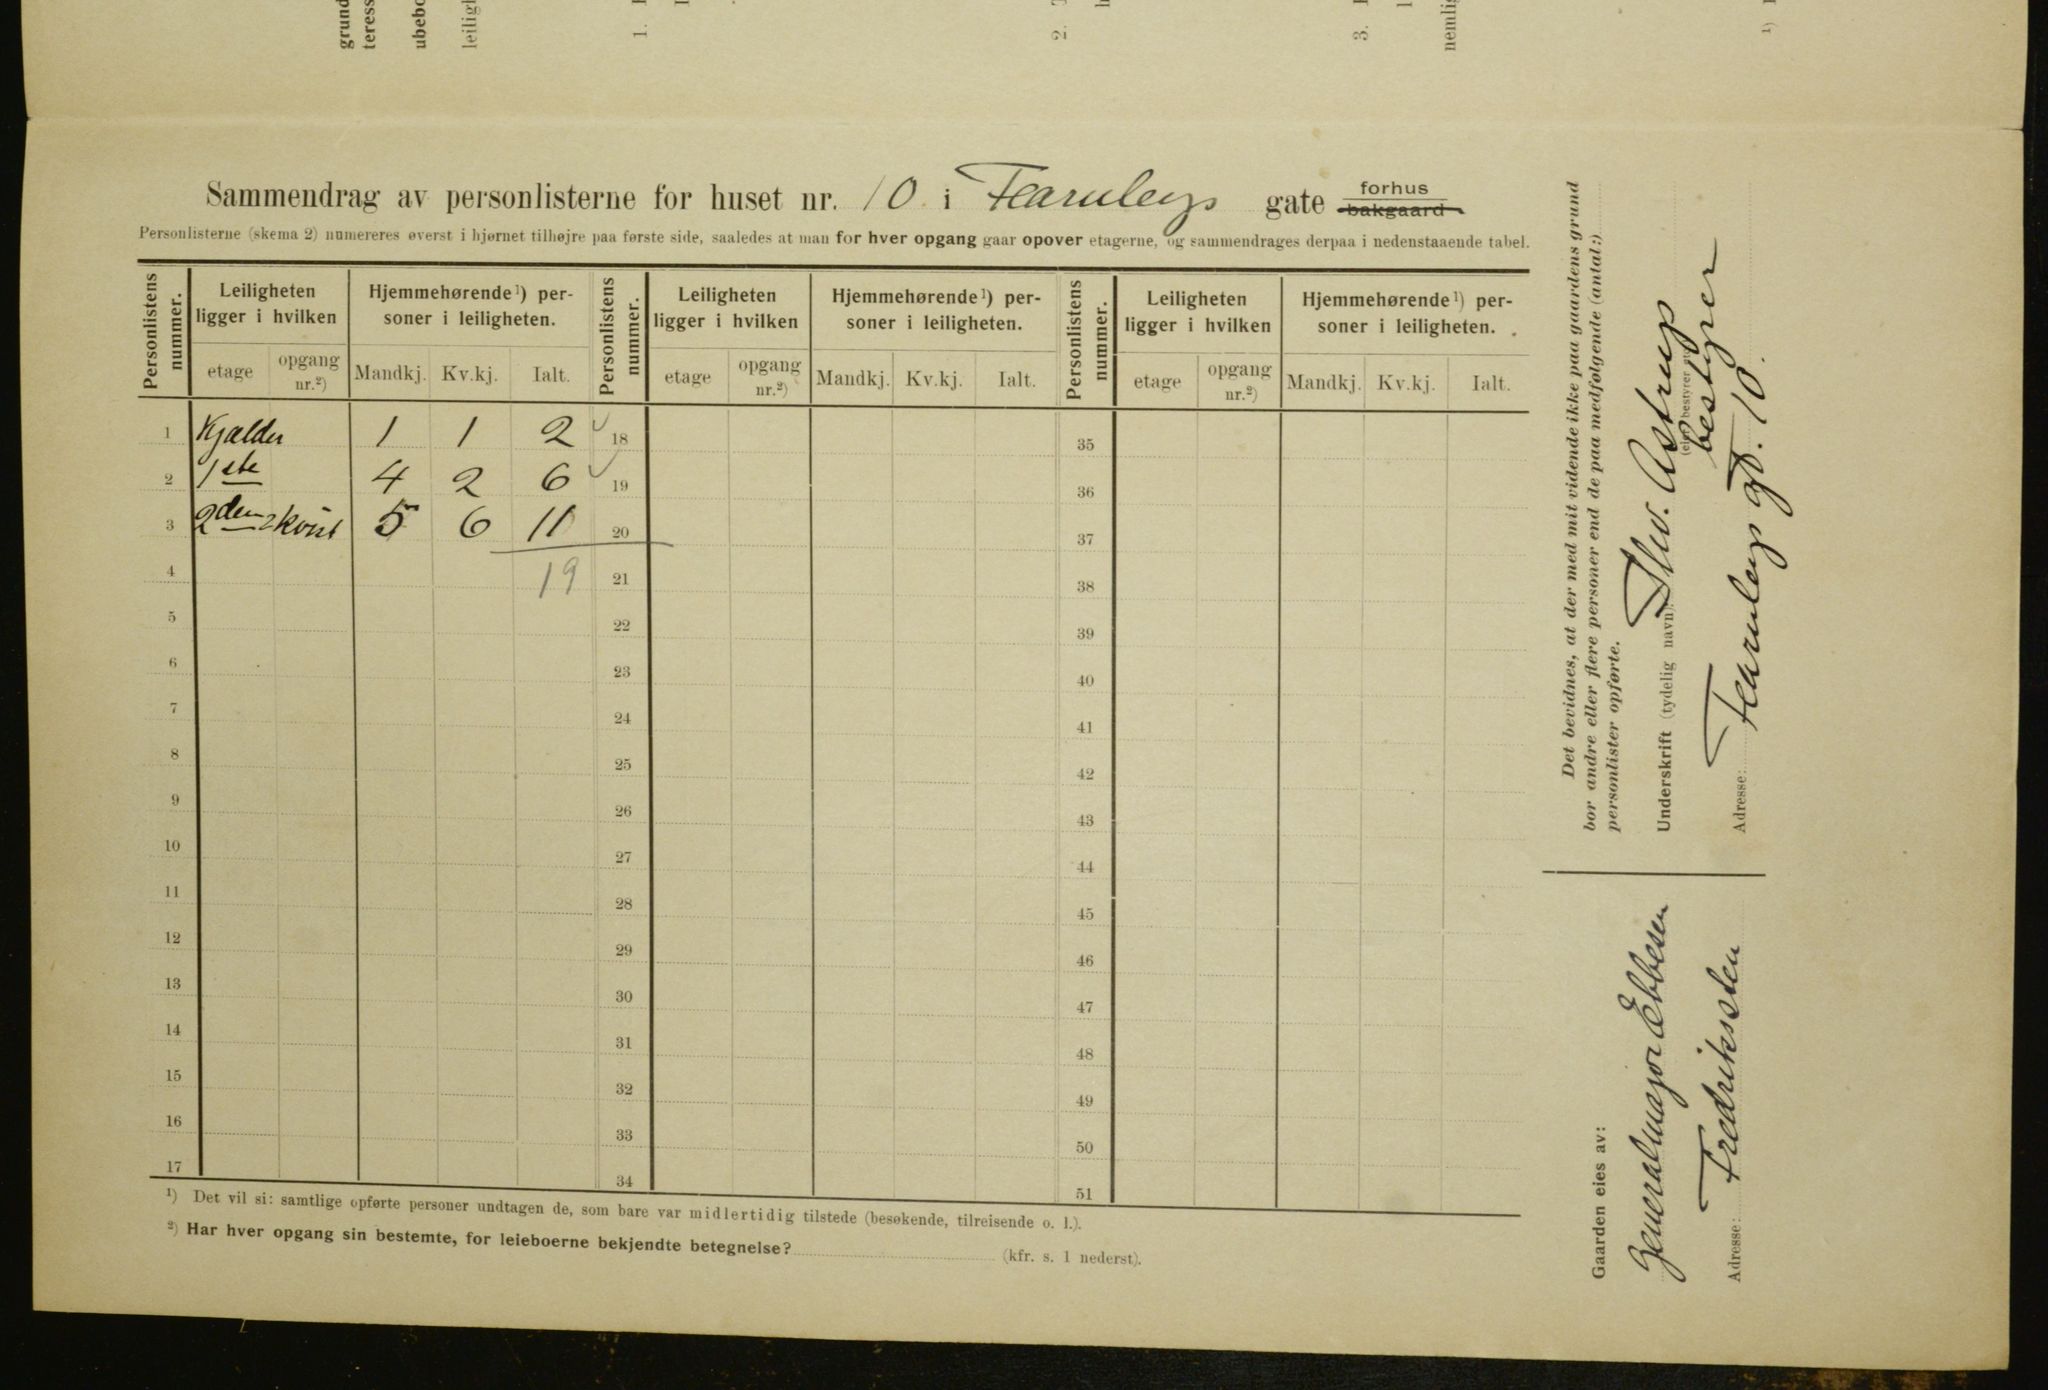 grund
teress
ubebo
leiligh
1.
2.
3.
nemlig
1)
Sammendrag av personlisterne for huset nr. 10 i Fearnleys gate forhus bakgaard
Personlisterne (skema 2) numereres øverst i hjørnet tilhøjre paa første side, saaledes at man for hver opgang gaar opover etagerne, og sammendrages derpaa i nedenstaaende tabel.
Personlistens nummer. Leiligheten ligger i hvilken Hjemmehørende 1) personer i leiligheten. Personlistens nummer. Leiligheten ligger i hvilken Hjemmehørende 1) personer i leiligheten. Personlistens nummer. Leiligheten ligger i hvilken Hjemmehørende 1) personer i leiligheten.
etage opgang nr.2) Mandkj. Kv.kj. Ialt. etage opgang nr.2) Mandkj. Kv.kj. Ialt. etage opgang nr.2) Mandkj. Kv.kj. Ialt.
1 Kjælder 1 1 2 18 35
2 1ste 4 2 6 19 36
3 2den kvist 5 6 11 20 37
4 19 21 38
5 22 39
6 23 40
7 24 41
8 25 42
9 26 43
10 27 44
11 28 45
12 29 46
13 30 47
14 31 48
15 32 49
16 33 50
17 34 51
1) Det vil si: samtlige opførte personer undtagen de, som bare var midlertidig tilstede (besøkende, tilreisende o. l.).
2) Har hver opgang sin bestemte, for leieboerne bekjendte betegnelse? (kfr. s. 1 nederst).
Det bevidnes, at der med mit vidende ikke paa gaardens grund
bor andre eller flere personer end de paa medfølgende (antal:)
personlister opførte.
Underskrift (tydelig navn): Thv. Astrup
bestyrer
Adresse: Fearnleys gt. 10
Gaarden eies av:
Generalmajor Ebbesen
Adresse: Fredriksten